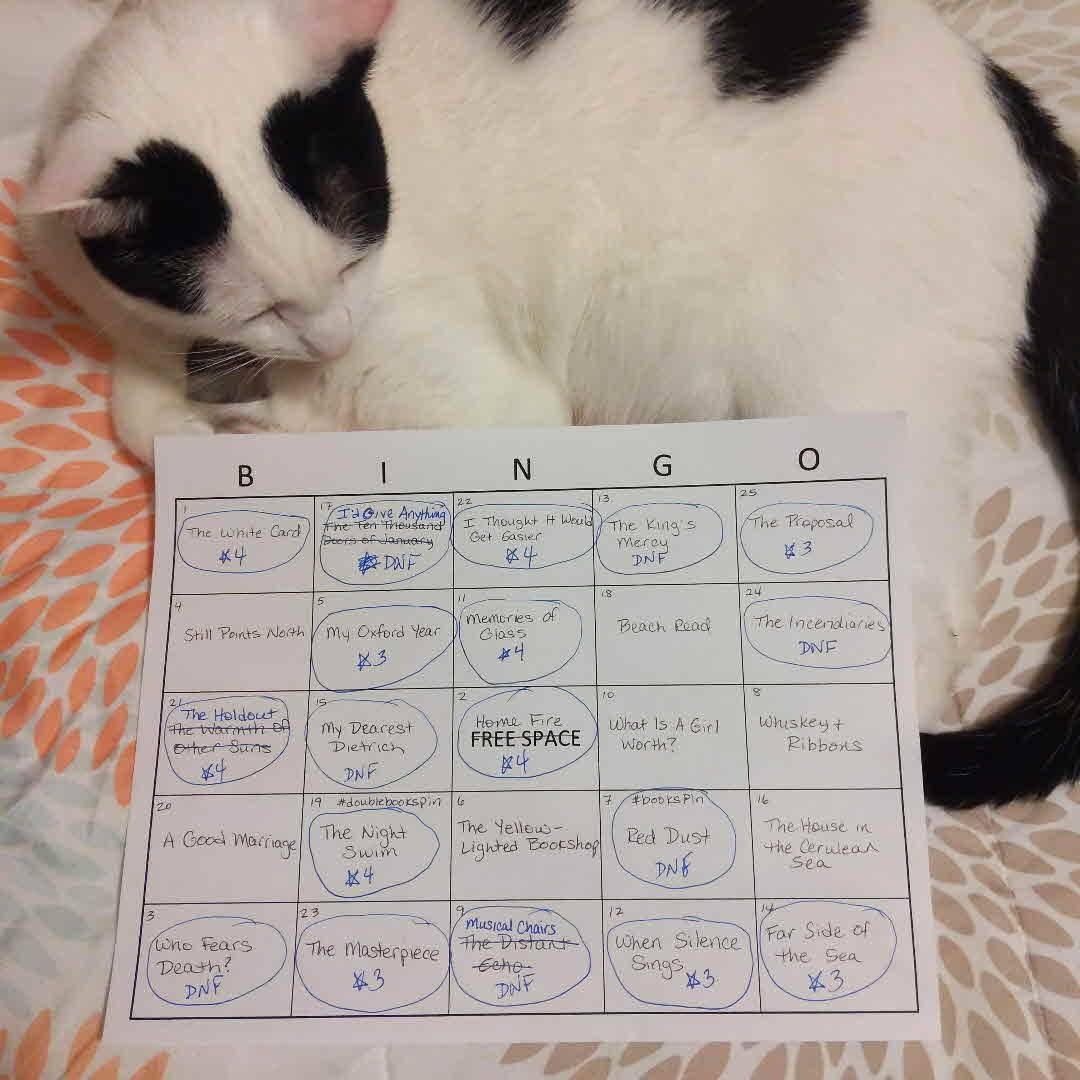 B I N G O
1
The White Card
☆4
17
I'd Give Anything
The Ten Thousand
Doors of January
☆ DNF
22
I Thought It Would
Get Easier
☆4
13
The King's
Mercy
DNF
25
The Proposal
☆3
4
Still Points North
5
My Oxford Year
☆3
11
Memories of
Glass
☆4
18
Beach Read
24
The Incendiaries
DNF
21
The Holdout
The Warmth of
Other Suns
☆4
15
My Dearest
Dietrich
DNF
2
Home Fire
FREE SPACE
☆4
10
What Is A Girl
Worth?
8
Whiskey +
Ribbons
20
A Good Marriage
19 #doublebookspin
The Night
Swim
☆4
6
The Yellow-
Lighted Bookshop
7 #bookspin
Red Dust
DNF
16
The House in
the Cerulean
Sea
3
Who Fears
Death?
DNF
23
The Masterpiece
☆3
9
Musical Chairs
The Distant
Echo
DNF
12
When Silence
Sings
☆3
14
Far Side of
the Sea
☆3